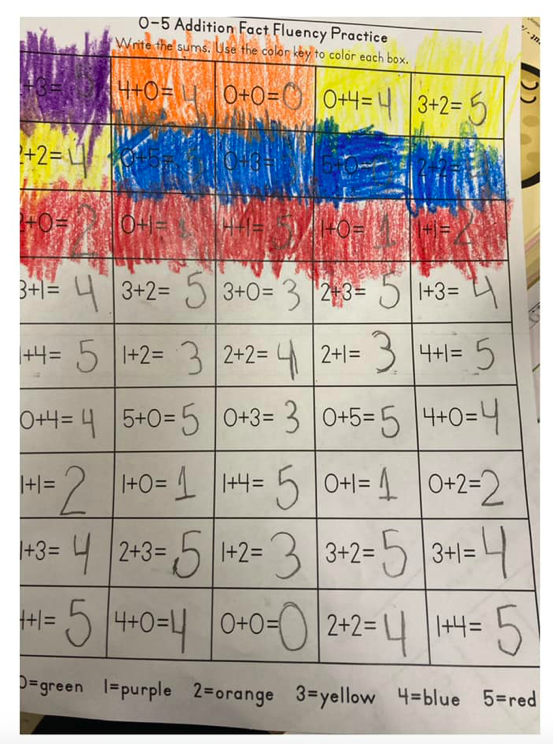 0-5 Addition Fact Fluency Practice
Write the sums. Use the color key to color each box.
+3= 4+0=4 0+0=0 0+4=4 3+2=5
+2=4 0+5= 0+3= 5+0= 2+2=
+0=2 0+1=1 4+1=5 1+0=1 1+1=2
3+1=4 3+2=5 3+0=3 2+3=5 1+3=4
+4=5 1+2=3 2+2=4 2+1=3 4+1=5
0+4=4 5+0=5 0+3=3 0+5=5 4+0=4
1+1=2 1+0=1 1+4=5 0+1=1 0+2=2
1+3=4 2+3=5 1+2=3 3+2=5 3+1=4
+1=5 4+0=4 0+0=0 2+2=4 1+4=5
0=green 1=purple 2=orange 3=yellow 4=blue 5=red